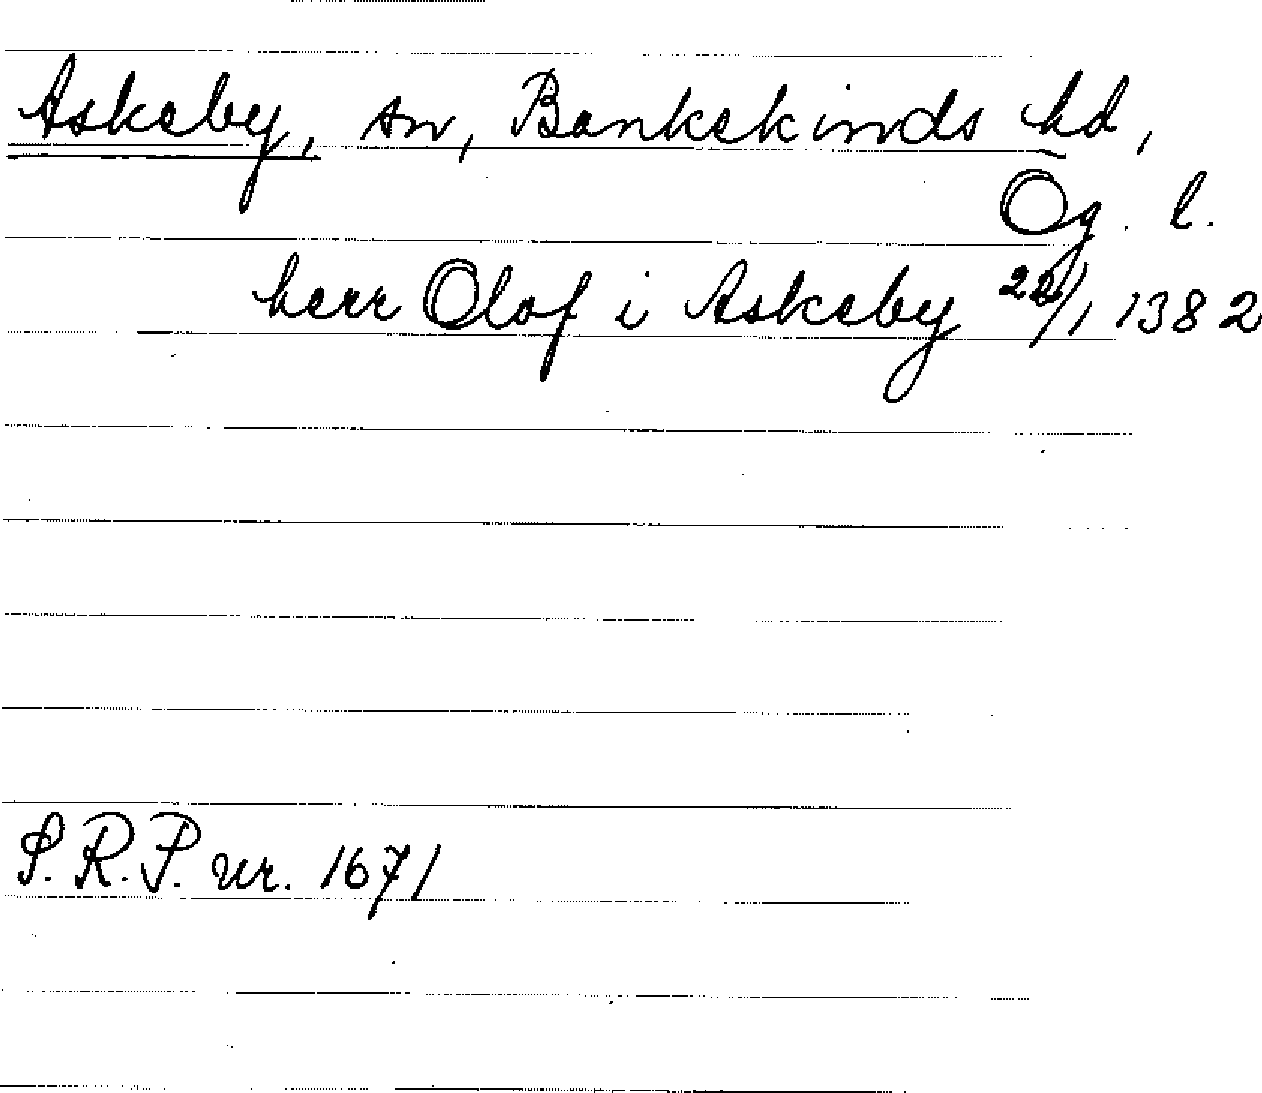 Askeby, sn, Bankekinds hd,
Ög. l.
herr Olof i Askeby 22/1 1382
S.R.P. nr. 1671